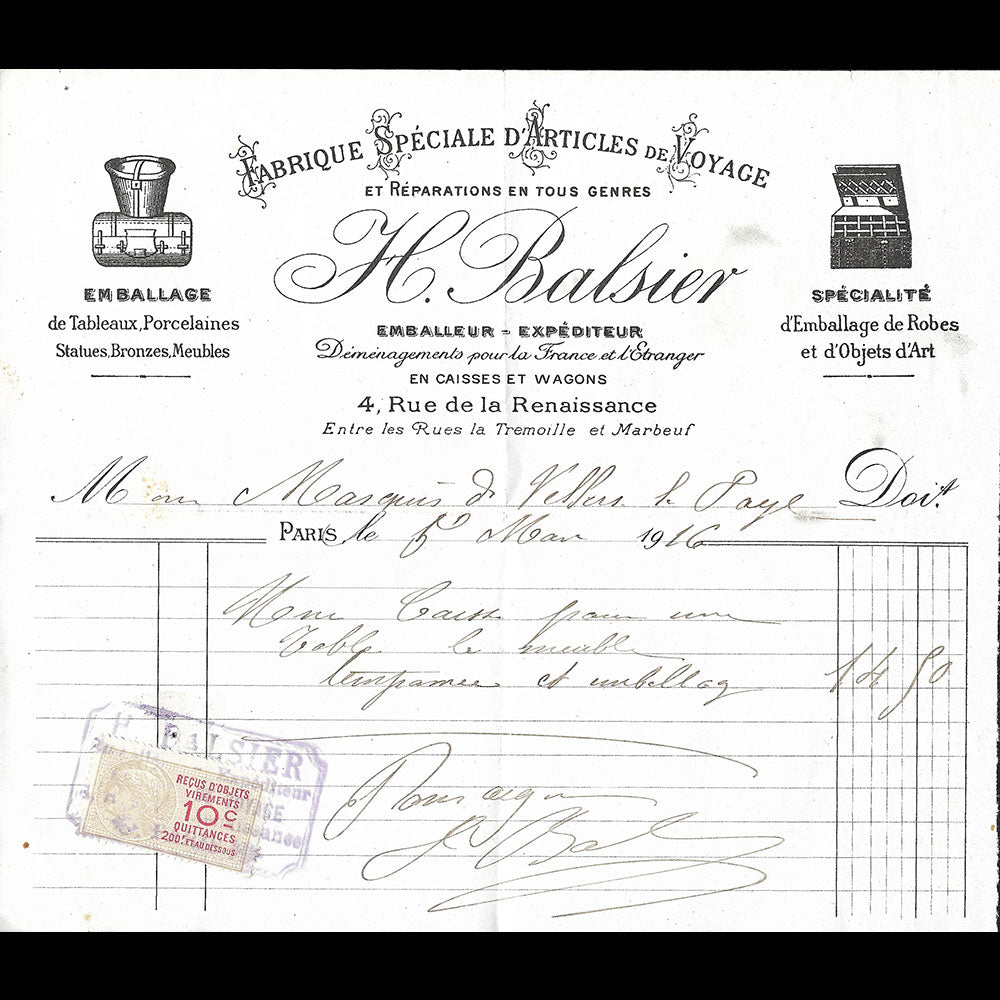 FABRIQUE SPÉCIALE D'ARTICLES DE VOYAGE
ET RÉPARATIONS EN TOUS GENRES
H. Balsier
EMBALLEUR - EXPÉDITEUR
Déménagements pour la France et l'Etranger
EN CAISSES ET WAGONS
4, Rue de la Renaissance
Entre les Rues la Tremoille et Marbeuf
EMBALLAGE
de Tableaux, Porcelaines
Statues, Bronzes, Meubles
SPÉCIALITÉ
d'Emballage de Robes
et d'Objets d'Art
M Marquis de Doit
PARIS, le 5 Mars 1916
Une Caisse pour une
Table
et emballage 14 50
H. BALSIER
REÇUS D'OBJETS
VIREMENTS
10c
QUITTANCES
200f ET AU DESSOUS
Pour acquit